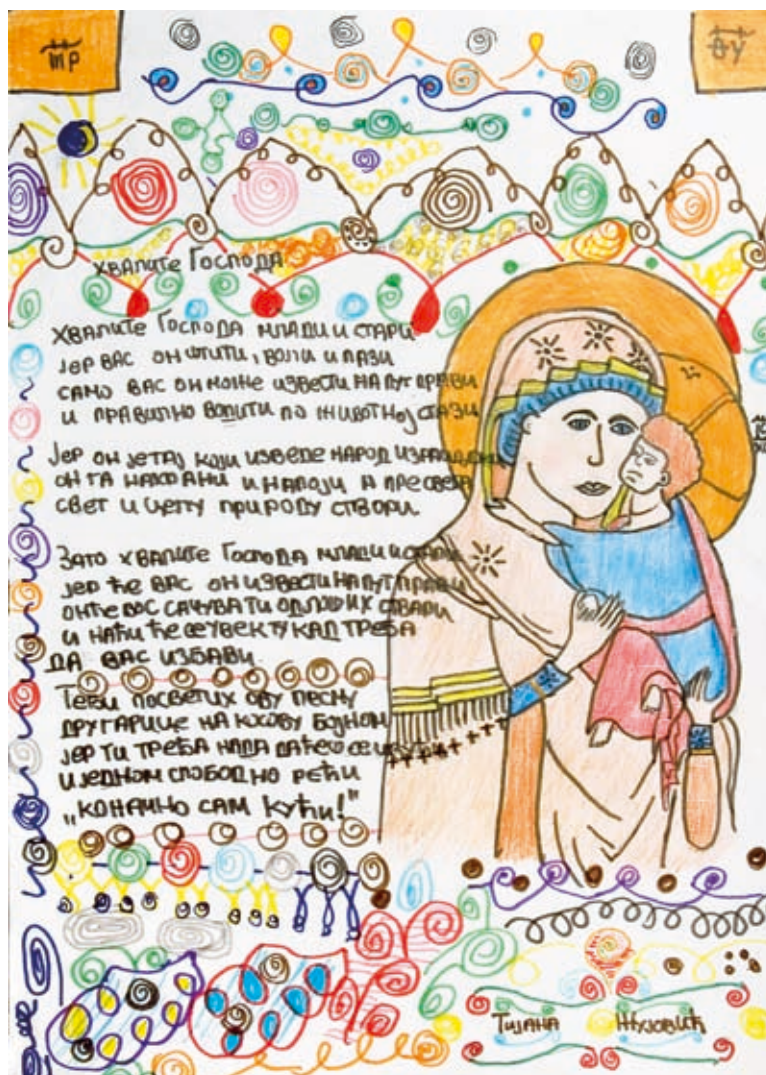 МР
ѲУ
хвалите Господа
Хвалите Господа млади и стари
јер вас он штити, воли и пази
само вас он може извести на пут прави
и правилно водити по животној стази
Јер он је тај који изведе народ
он га нахрани и напоји и
свет и целу природу створи.
Зато хвалите Господа млади и стари
јер ће вас он извести на пут прави
он ће вас сачувати од лоших ствари
и наћи ће се увек ту кад треба
да вас избави
Теби посветих ову песму
другарице на Косову бојном
јер ти треба нада да ћеш се
и једном слободно рећи
„коначно сам кући!"
Тијана Жујовић